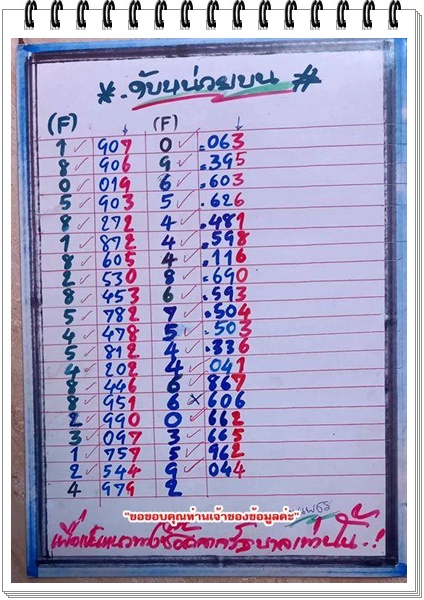 *. จับหน่วยบน #
(F) (F)
1 ✓ 907 0 ✓ .063
8 ✓ 906 9 ✓ .395
0 ✓ 019 6 ✓ .603
5 ✓ 903 5 ✓ .626
8 ✓ 272 4 ✓ .481
1 ✓ 872 4 ✓ .598
8 ✓ 605 4 ✓ .116
2 ✓ 530 8 ✓ .690
8 ✓ 453 6 ✓ .593
5 ✓ 782 7 ✓ .504
4 ✓ 478 5 ✓ .503
5 ✓ 812 4 ✓ .336
4 ✓ 202 4 ✓ 041
8 ✓ 446 6 ✓ 867
8 ✓ 951 6 ✗ 606
2 ✓ 990 0 ✓ 662
3 ✓ 097 3 ✓ 665
1 ✓ 757 5 ✓ 962
2 ✓ 544 9 ✓ 044
4 979 2
"ขอขอบคุณท่านเจ้าของข้อมูลค่ะ"
เพื่อเป็นแนวทางซื้อสลากรัฐบาลเท่านั้น.!